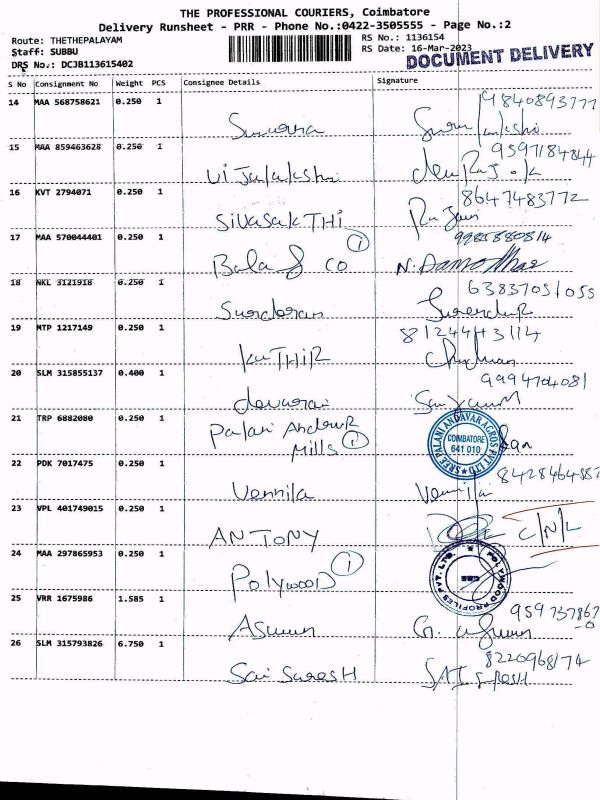 THE PROFESSIONAL COURIERS, Coimbatore
Delivery Runsheet - PRR - Phone No.:0422-3505555 - Page No.:2
Route: THETHEPALAYAM RS No.: 1136154
Staff: SUBBU RS Date: 16-Mar-2023
DOCUMENT DELIVERY
DRS No.: DCJB113615402
S No Consignment No Weight PCS Consignee Details Signature
9840893777
14 MAA 568758621 0.250 1
Suwarna
15 MAA 859463628 0.250 1
9597184844
Vijalakshmi
16 KVT 2794071 0.250 1
8647483772
SivasakTHi
17 MAA 570044401 0.250 1
Bala & co 1 N. Damodhar
18 NKL 3121918 0.250 1
Surendran
19 MTP 1217149 0.250 1
KaTHiR
20 SLM 315855137 0.400 1
9994704081
devarai
21 TRP 6882080 0.250 1
Palani Andavar
Mills 1
SREE PALANI ANDAVAR AGROS PVT LTD
COIMBATORE
641 010
22 PDK 7017475 0.250 1
Vennila Vennila
23 VPL 401749015 0.250 1
ANTONY C/N/L
24 MAA 297865953 0.250 1
Polywood 1
POLYWOOD PROFILES PVT. LTD.
25 VRR 1675986 1.585 1
Aswin
26 SLM 315793826 6.750 1
8220968174
Sai SuresH SAI